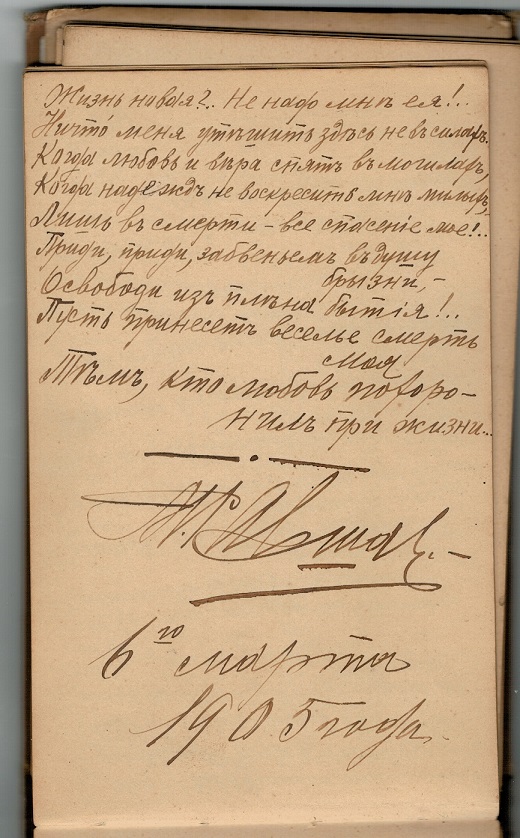 Жизнь новая?.. Не надо мнѣ ея!..
Ничто́ меня утѣшить здѣсь не въ силахъ.
Когда любовь и вѣра спятъ въ могилахъ,
Когда надеждъ не воскресить мнѣ милыхъ,
Лишь въ смерти – все спасеніе мое!..
Приди, приди, забвеньемъ въ душу
брызни, –
Освободи изъ плѣна бытія!..
Пусть принесетъ веселье смерть
моя
Тѣмъ, кто любовь похоро–
нилъ при жизни...
6го марта
1905 года.